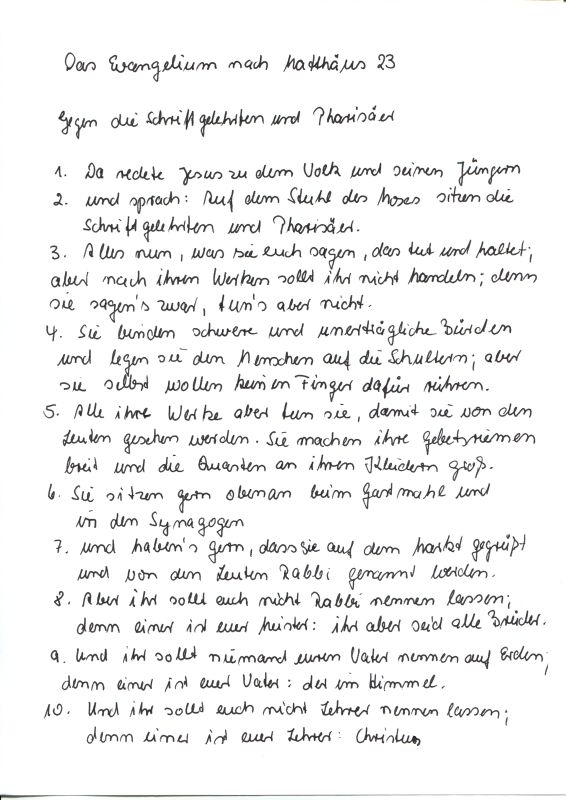 Das Evangelium nach Matthäus 23
Gegen die Schriftgelehrten und Pharisäer
1. Da redete Jesus zu dem Volk und seinen Jüngern
2. und sprach: Auf dem Stuhl des Moses sitzen die
Schriftgelehrten und Pharisäer.
3. Alles nun, was sie euch sagen, das tut und haltet;
aber nach ihren Werken sollt ihr nicht handeln; denn
sie sagen's zwar, tun's aber nicht.
4. Sie binden schwere und unerträgliche Bürden
und legen sie den Menschen auf die Schultern; aber
sie selbst wollen keinen Finger dafür rühren.
5. Alle ihre Werke aber tun sie, damit sie von den
Leuten gesehen werden. Sie machen ihre Gebetsriemen
breit und die Quasten an ihren Kleidern groß.
6. Sie sitzen gern obenan beim Gastmahl und
in den Synagogen
7. und haben's gern, dass sie auf dem Markt gegrüßt
und von den Leuten Rabbi genannt werden.
8. Aber ihr sollt euch nicht Rabbi nennen lassen;
denn einer ist euer Meister: ihr aber seid alle Brüder.
9. Und ihr sollt niemand euren Vater nennen auf Erden;
denn einer ist euer Vater: der im Himmel.
10. Und ihr sollt euch nicht Lehrer nennen lassen;
denn einer ist euer Lehrer: Christus